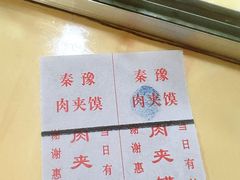 秦豫 秦豫
肉夹馍 肉夹馍
谢谢惠 肉夹 当日有 谢谢惠 肉夹 当日有